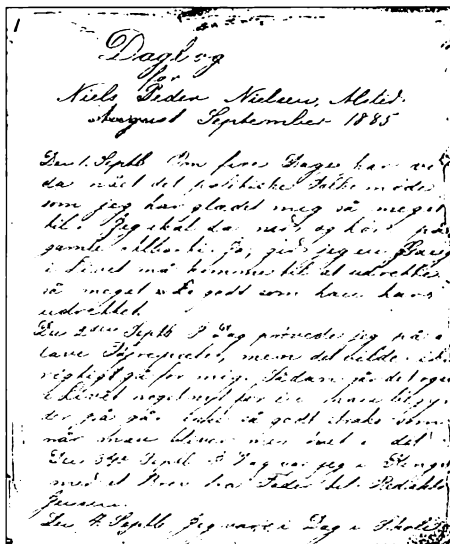 1
Dagbog
for
Niels Peder Nielsen, Alsted.
August September 1885
Den 1. Septb Om fire Dage har vi
da nået det politiske Folkemøde
som jeg har glædet mig så meget
til. Jeg skal da ned og høre på
gamle Ja, gid jeg en Gang
i Livet må komme til at udrette
så meget godt som han har
udrettet.
Den 2den Septb I Dag prøvede jeg på a
lave men det vilde ikke
rigtigt gå for mig. Sådan går det også
i Livet noget nyt for en man begyn
der på går ikke så godt straks som
når man bliver mer øvet i det.
Den 3dje Septb I Dag var jeg i
med et Brev fra Fader til Redaktø
Jensen.
Den 4. Septb. Jeg var i Dag i